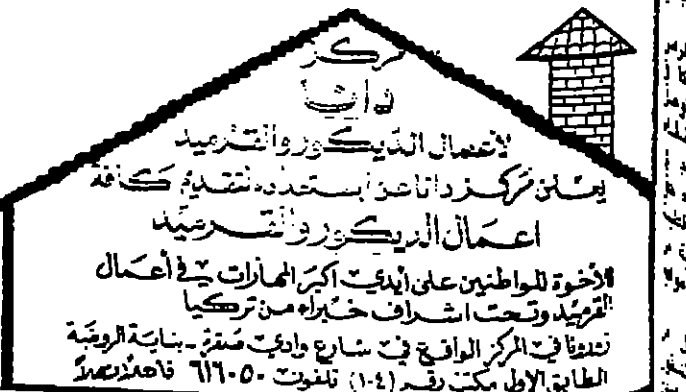 مركز
دانا
لأعمال الديكور والقرميد
يعلن مركز دانا عن استعداده لتقديم كافة
اعمال الديكور والقرميد
للأخوة المواطنين على أيدي اكبر المهارات في أعمال
القرميد وتحت اشراف خبراء من تركيا
في المركز الواقع في شارع وادي صقرة - بناية الروضة
الطابق الاول مكتب رقم (١٠٤) تلفون ٦١٦٠٥٠ فاهلاً وسهلاً